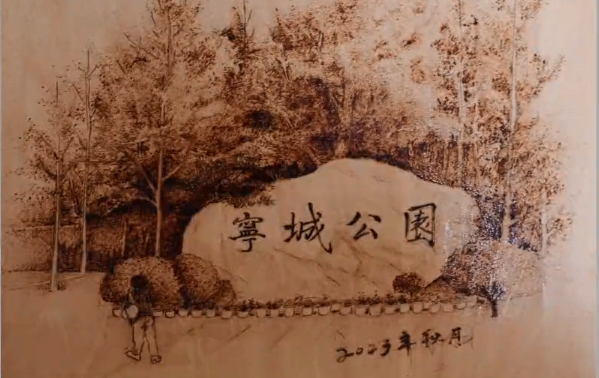 寧城公園
2023年秋月